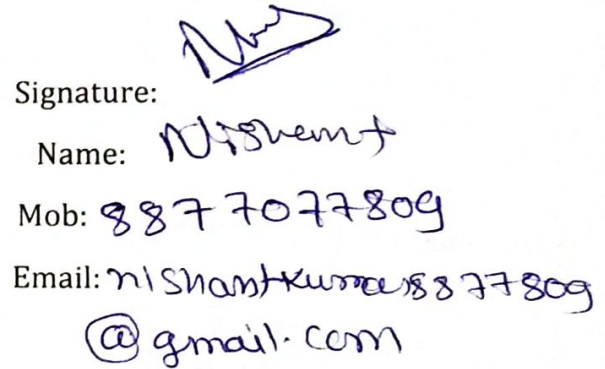 Signature:
Name: Nishant
Mob: 8877077809
Email: nishantkumar8877809
@gmail.com